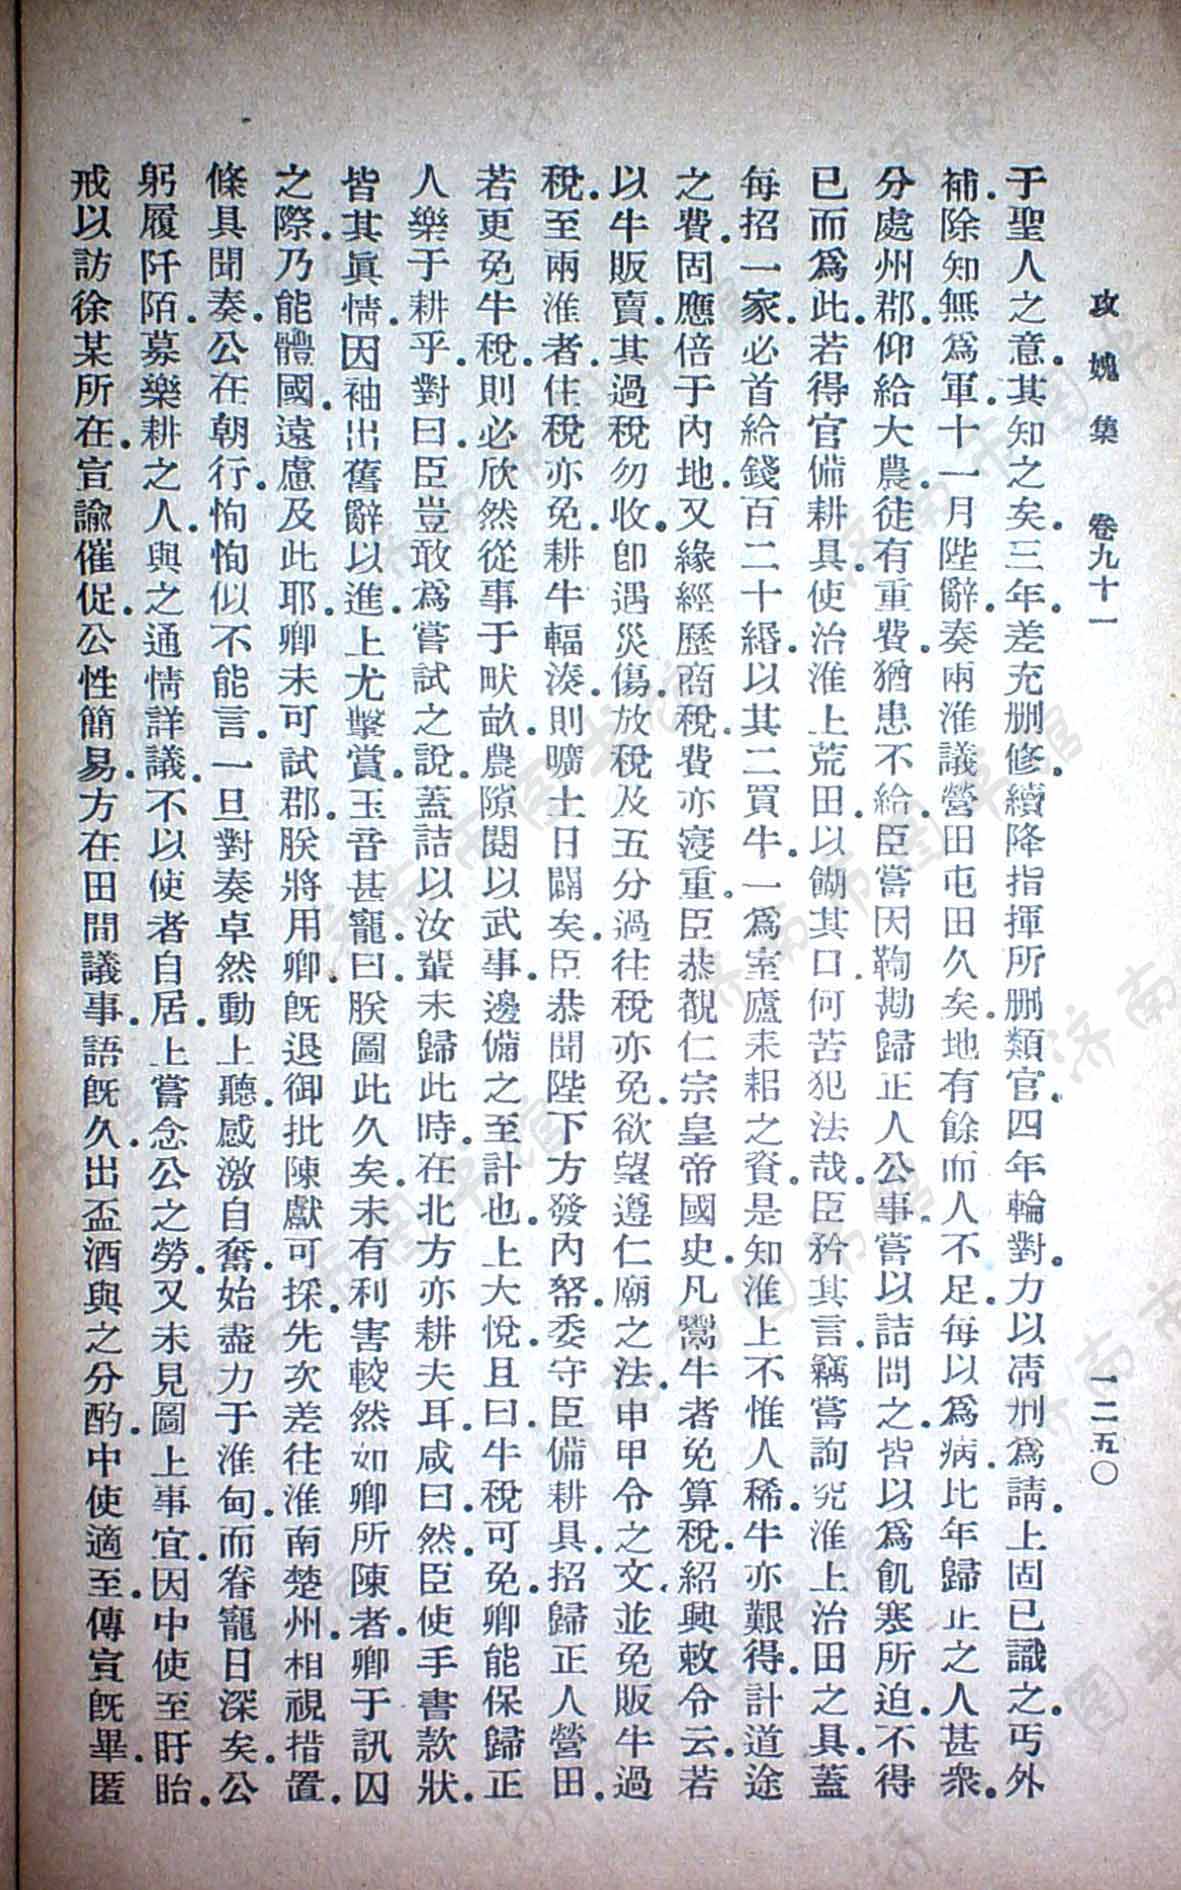 攻媿集 卷九十一 一二五〇
于聖人之意。其知之矣。三年。差充删修。續降指揮所删類官。四年輪對。力以淸刑爲請。上固已識之。丐外
補。除知無爲軍。十一月陛辭。奏兩淮議營田屯田久矣。地有餘而人不足。每以爲病。比年歸正之人甚衆。
分處州郡。仰給大農。徒有重費。猶患不給。臣嘗因鞫勘歸正人公事。嘗以詰問之。皆以爲飢寒所迫。不得
已而爲此。若得官備耕具。使治淮上荒田。以餬其口。何苦犯法哉。臣矜其言。竊嘗詢究淮上治田之具。蓋
每招一家。必首給錢百二十緡。以其二買牛。一爲室廬耒耜之資。是知淮上不惟人稀。牛亦艱得。計道途
之費。固應倍于內地。又緣經歷商稅。費亦寖重。臣恭覩仁宗皇帝國史。凡鬻牛者免算稅。紹興敕令云。若
以牛販賣。其過稅勿收。卽遇災傷。放稅及五分。過往稅亦免。欲望遵仁廟之法。申甲令之文。並免販牛過
稅。至兩淮者。住稅亦免。耕牛輻湊。則曠土日闢矣。臣恭聞陛下方發內帑。委守臣備耕具。招歸正人營田。
若更免牛稅。則必欣然從事于畎畝。農隙閱以武事。邊備之至計也。上大悅。且曰。牛稅可免。卿能保歸正
人樂于耕乎。對曰。臣豈敢爲嘗試之說。蓋詰以汝輩未歸此時。在北方亦耕夫耳。咸曰。然。臣使手書款狀。
皆其眞情。因袖出舊辭以進。上尤擊賞。玉音甚寵。曰。朕圖此久矣。未有利害較然如卿所陳者。卿于訊囚
之際。乃能體國。遠慮及此耶。卿未可試郡。朕將用卿。旣退。御批陳獻可採。先次差往淮南楚州。相視措置。
條具聞奏。公在朝行。恂恂似不能言。一旦對奏。卓然動上聽。感激自奮。始盡力于淮甸。而眷寵日深矣。公
躬履阡陌。募樂耕之人。與之通情詳議。不以使者自居。上嘗念公之勞。又未見圖上事宜。因中使至盱眙。
戒以訪徐某所在。宣諭催促。公性簡易。方在田間議事。語旣久。出盃酒與之分酌。中使適至。傳宣旣畢。匿